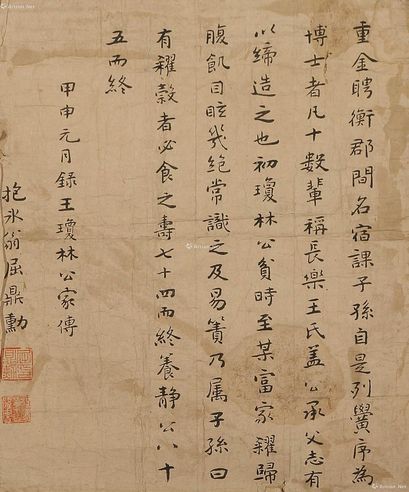 重金聘衡郡間名宿課子孫自是列黌序為
博士者凡十數輩稱長樂王氏蓋公承父志有
以締造之也初瓊林公貧時至某富家糴歸
腹飢目眩幾絕常識之及易簀乃属子孫曰
有糴糓者必食之壽七十四而終養靜公八十
五而終
甲申元月録王瓊林公家傳
抱冰翁屈鼎勳